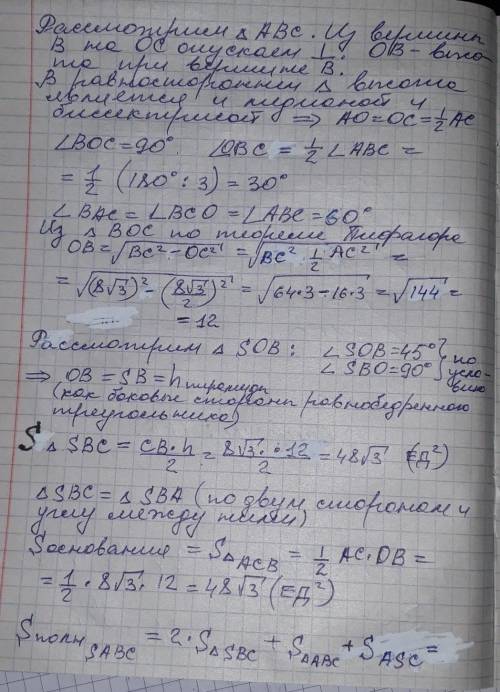 Рассмотрим △ABC. Из вершины
B на OC опускаем ⊥. OB - высо-
та при вершине B.
В равностороннем △ высота
является и медианой и
биссектрисой ⇒ AO=OC=1/2 AC
∠BOC=90°. ∠OBC = 1/2 ∠ABC =
= 1/2 (180° : 3) = 30°
∠BAC = ∠BCO = ∠ABC = 60°
Из △ BOC по теореме Пифагора
OB = √(BC² - OC²) = √(BC² 1/2 AC²) =
= √((8√3)² - (8√3/2)²) = √(64·3 - 16·3) = √144 =
= 12
Рассмотрим △ SOB: ∠SOB=45° ∠SBO=90° } по усло-вию
⇒ OB = SB = h пирамиды
(как боковые стороны равнобедренного
треугольника)
S △ SBC = CB·h/2 = 8√3 · 12/2 = 48√3 (ЕД²)
△SBC = △SBA (по двум сторонам и
углу между ними)
Sоснование = S△ACB = 1/2 AC·OB =
= 1/2 · 8√3 · 12 = 48√3 (ЕД²)
Sполн SABC = 2·S△SBC + S△ABC + SASC =